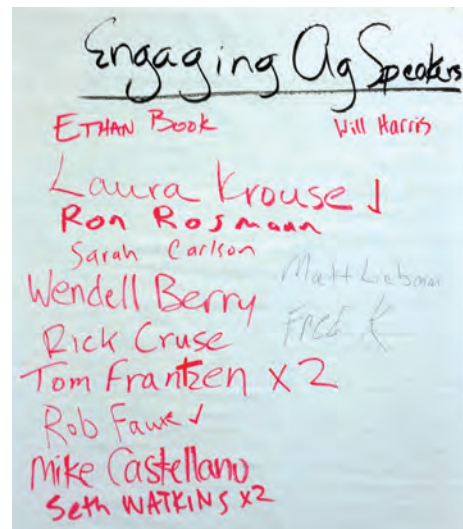 Engaging Ag Speakers
ETHAN BOOK
Will Harris
Laura Krouse ✓
Ron Rosmann
Sarah Carlson
Matt Liebman
Wendell Berry
Fred K
Rick Cruse
Tom Frantzen x 2
Rob Faux ✓
Mike Castellano
Seth WATKINS x2